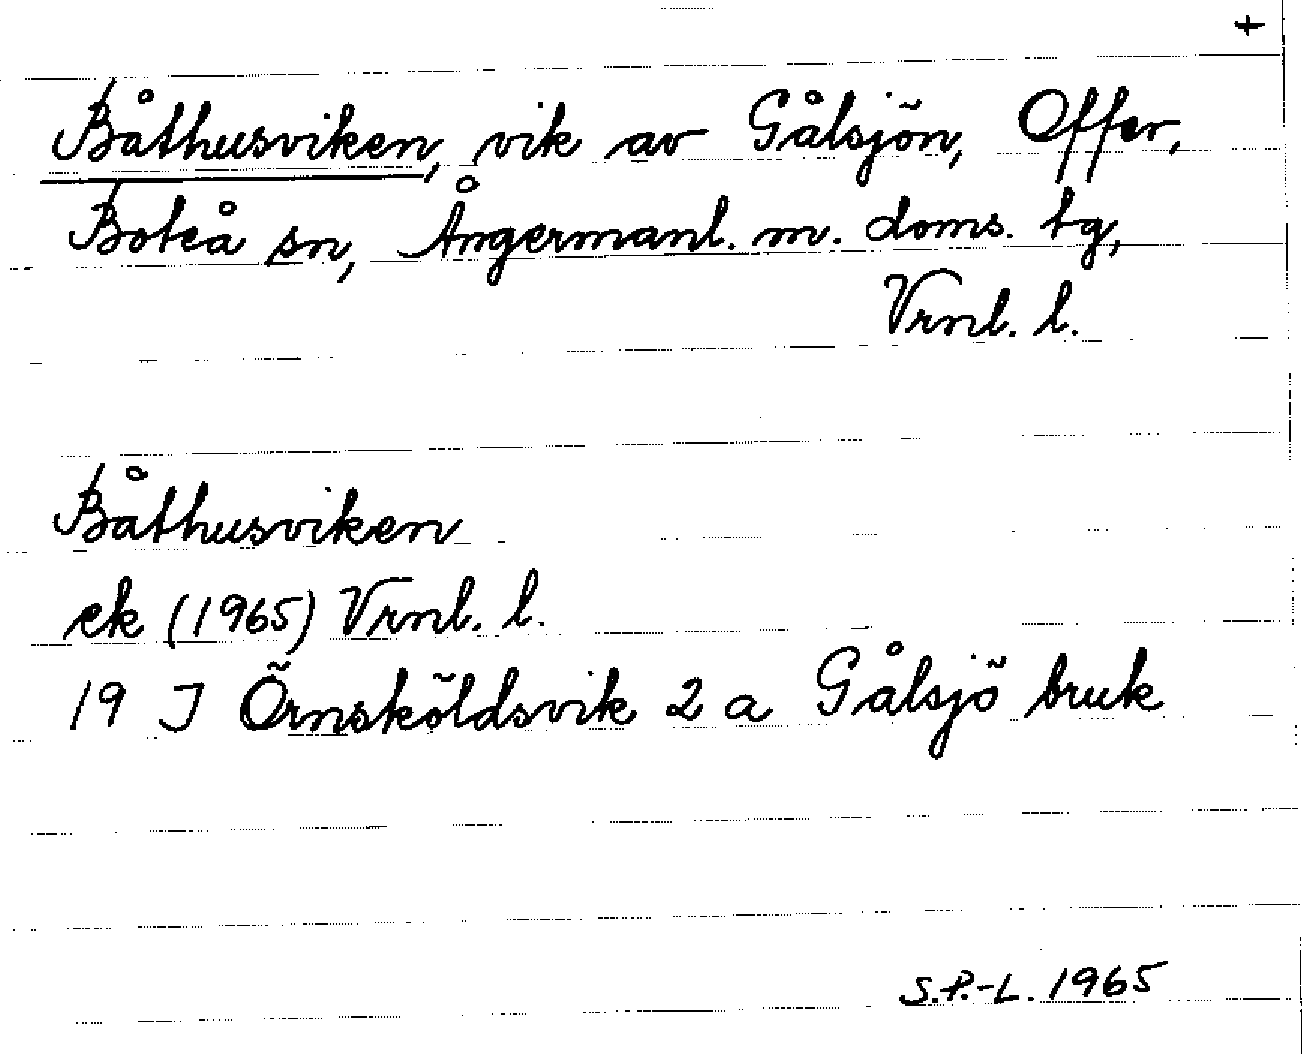 +
Båthusviken, vik av Gålsjön, Offer,
Boteå sn, Ångermanl. m. doms. tg,
Vrnl. l.
Båthusviken
ek (1965) Vrnl. l.
19 J Örnsköldsvik 2 a Gålsjö bruk
S.P.-L. 1965